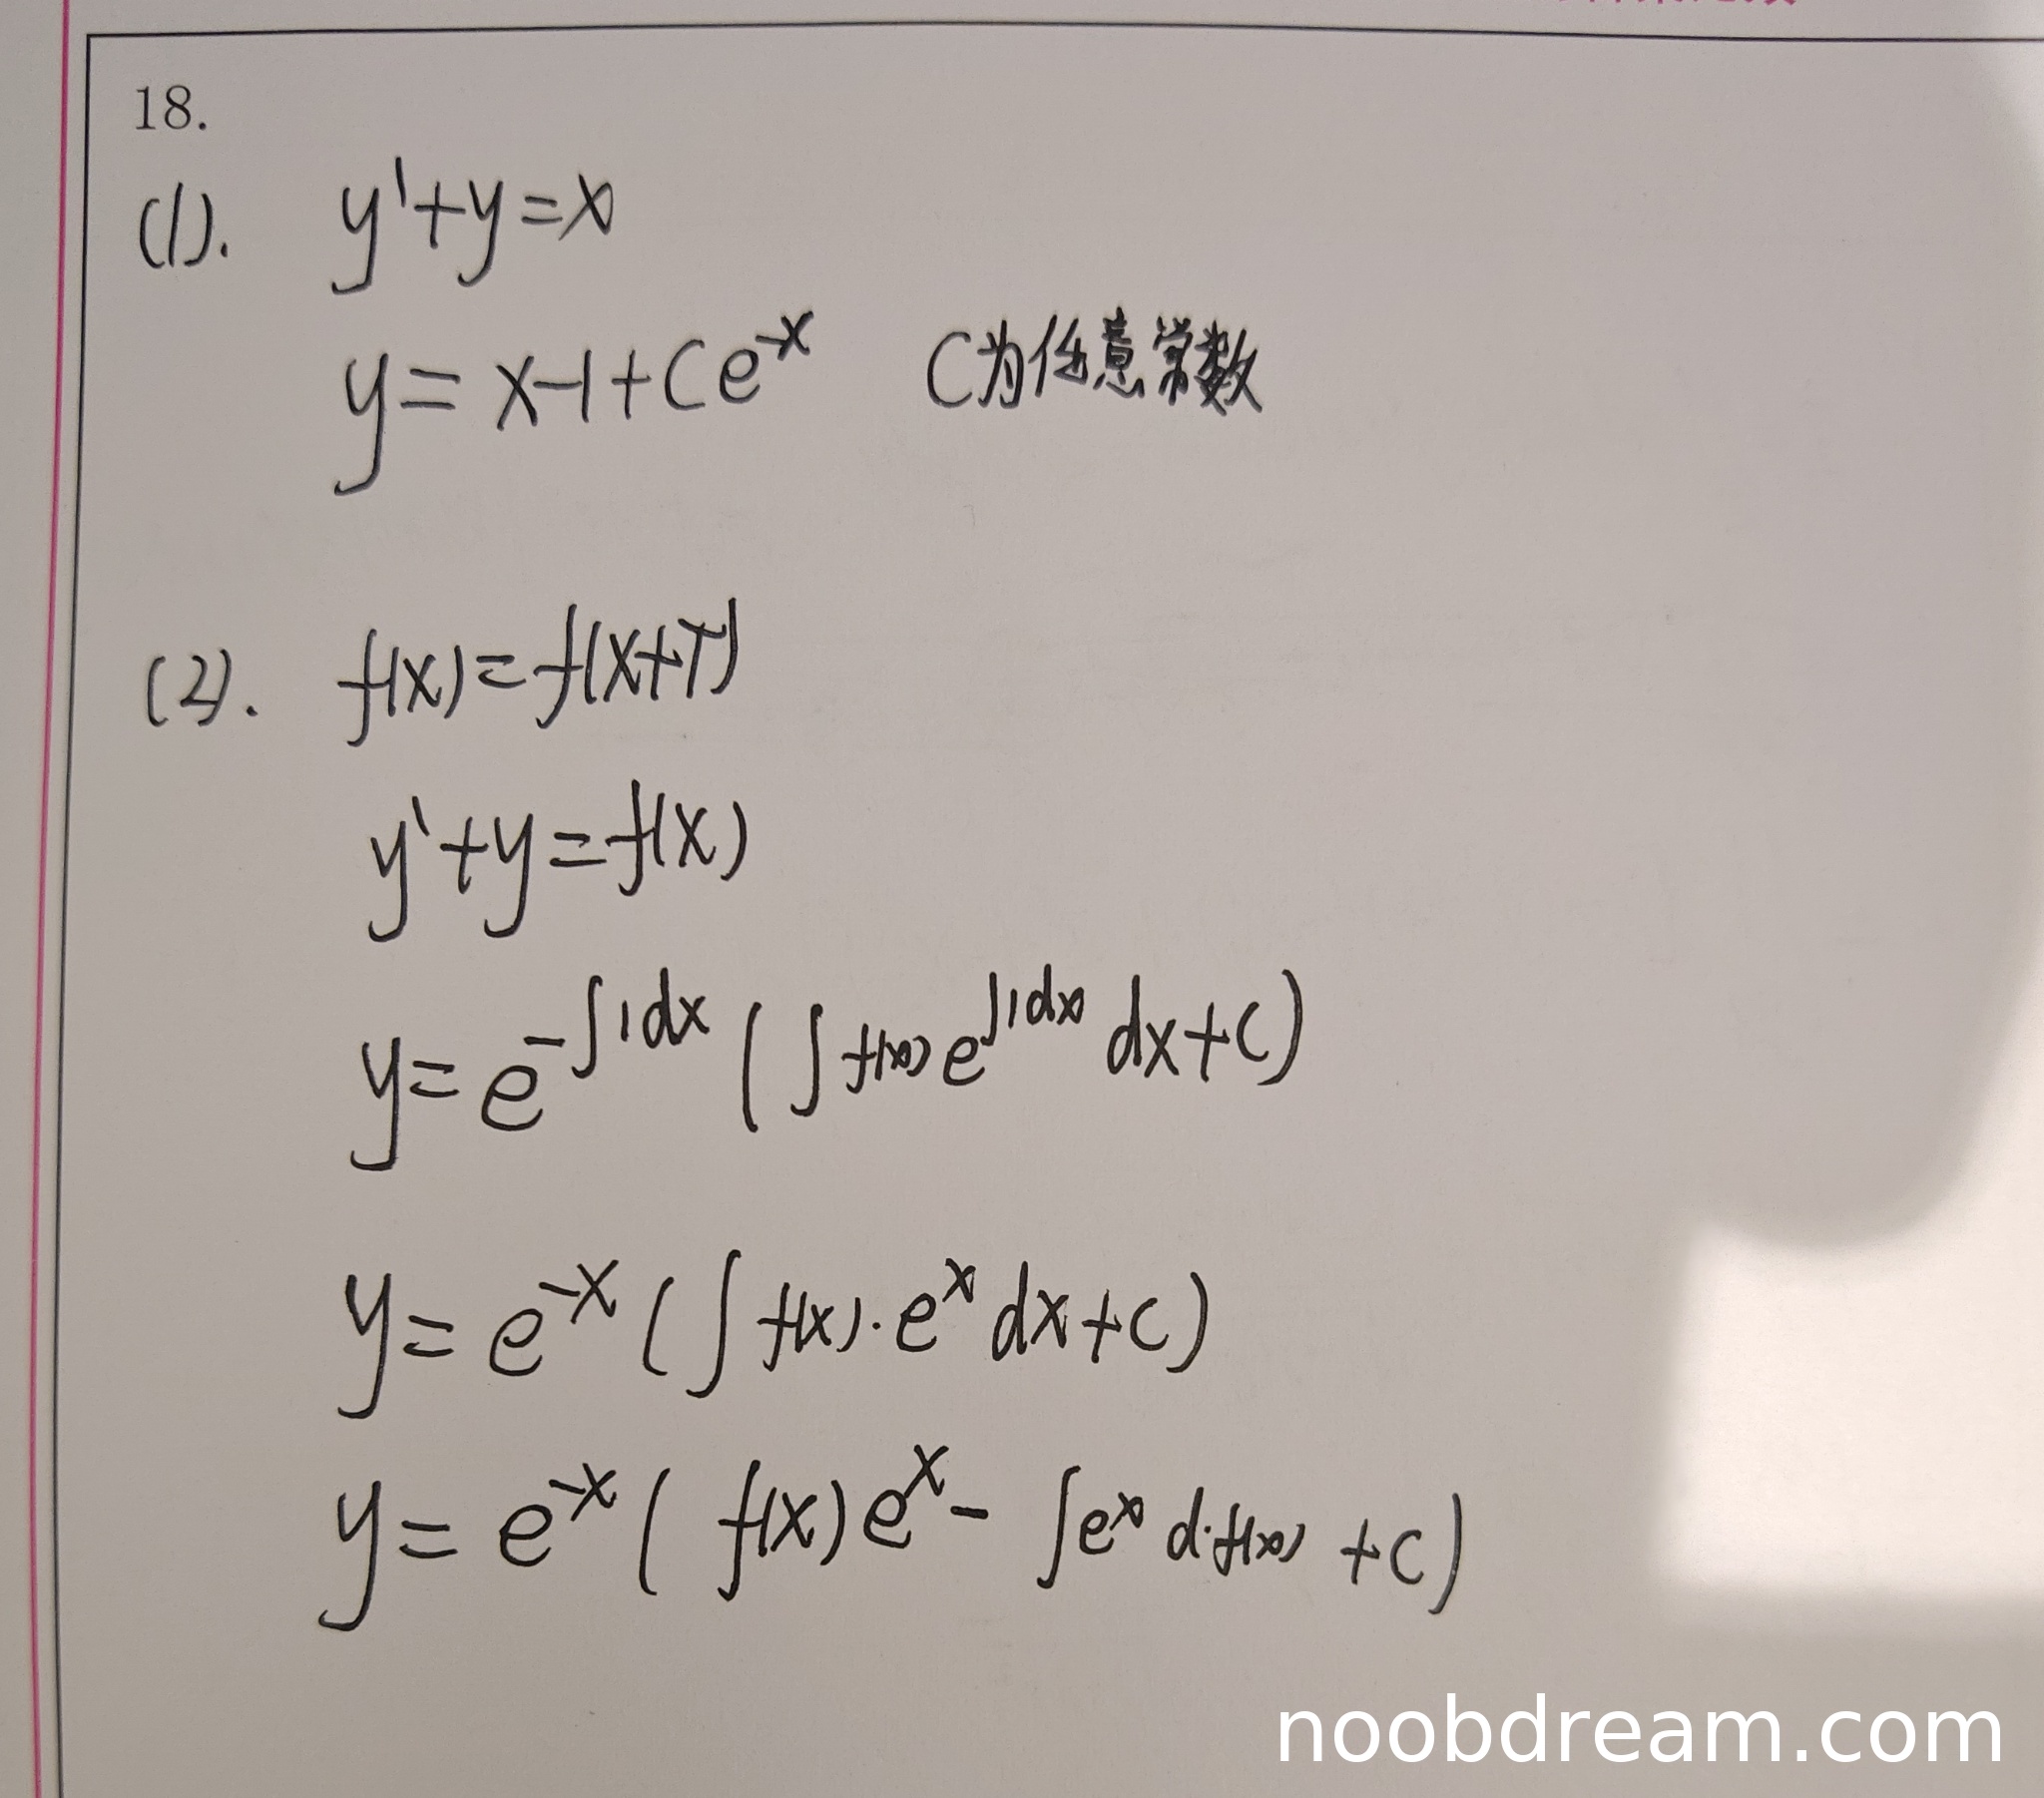 18.
(1). y'+y=x
y=x-1+Ce^{-x} C为任意常数
(2). f(x)=f(x+T)
y'+y=f(x)
y=e^{-∫1dx}(∫f(x)e^{∫1dx}dx+C)
y=e^{-x}(∫f(x)·e^x dx+C)
y=e^{-x}(f(x)e^x-∫e^x d·f(x)+C)
noobdream.com